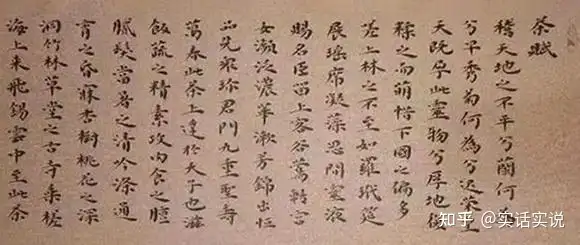 茶賦
稽天地之不平兮蘭何為
兮早秀菊何為兮迟榮皇
天既孕此靈物兮厚地復
糅之而萌惜下國之偏多
嗟上林之不至如羅玳筵
展瑤席凝藻思間靈液
賜名臣留上客谷鶯囀宮
女瀕泛濃華漱芳錦出恒
品先眾珍君門九重聖壽
萬春此茶上達於天子也滋
飯蔬之精素攻肉食之膻
膩發當暑之清吟滌通
宵之昏寐杏樹桃花之深
洞竹林草堂之古寺乘槎
海上来飛錫雲中至此茶
知乎 @实话实说